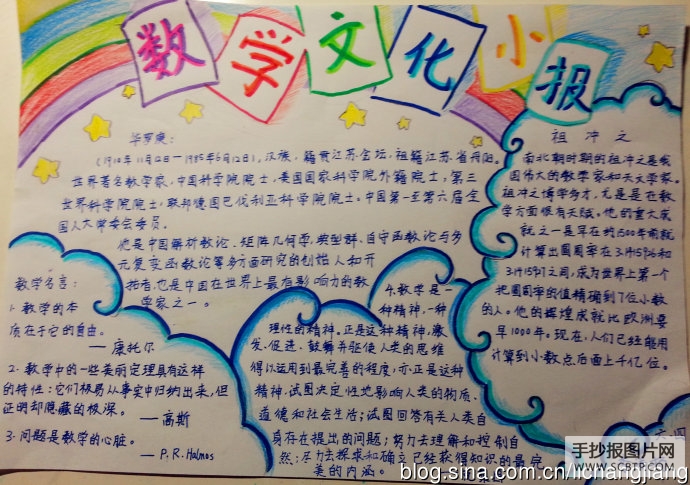 数学文化小报
华罗庚：
（1910年11月12日—1985年6月12日），汉族，籍贯江苏金坛，祖籍江苏省丹阳。
世界著名数学家，中国科学院院士，美国国家科学院外籍院士，第三
世界科学院院士，联邦德国巴伐利亚科学院院士。中国第一至第六届全
国人大常委会委员。
他是中国解析数论、矩阵几何学、典型群、自守函数论与多
元复变函数论等多方面研究的创始人和开
拓者，也是中国在世界上最有影响力的数
学家之一。
祖冲之
南北朝时期的祖冲之是我
国伟大的数学家和天文学家。
祖冲之博学多才，尤是是在数
学方面很有天赋。他的重大成
就之一是早在约1500年前就
计算出圆周率在3.1415926和
3.1415927之间，成为世界上第一个
把圆周率的值精确到7位小数
的人。他的辉煌成就比欧洲要
早1000年。现在，人们已经能用
计算到小数点后面上千亿位。
数学名言：
1.数学的本
质在于它的自由。
—康托尔
2.数学中的一些美丽定理具有这样
的特性：它们极易从事实中归纳出来，但
证明却隐藏的极深。
—高斯
3.问题是数学的心脏。
—P.R.Halmos
4.数学是一
种精神，一种
理性的精神。正是这种精神，激
发、促进、鼓舞并驱使人类的思维
得以运用到最完善的程度，亦正是这种
精神，试图决定性地影响人类的物质、
道德和社会生活；试图回答有关人类自
身存在提出的问题；努力去理解和控制自
然；尽力去探求和确立已经获得知识的最完
美的内涵。
手抄报图片网
WWW.SCBTP.COM
blog.sina.com.cn/lichangjiang